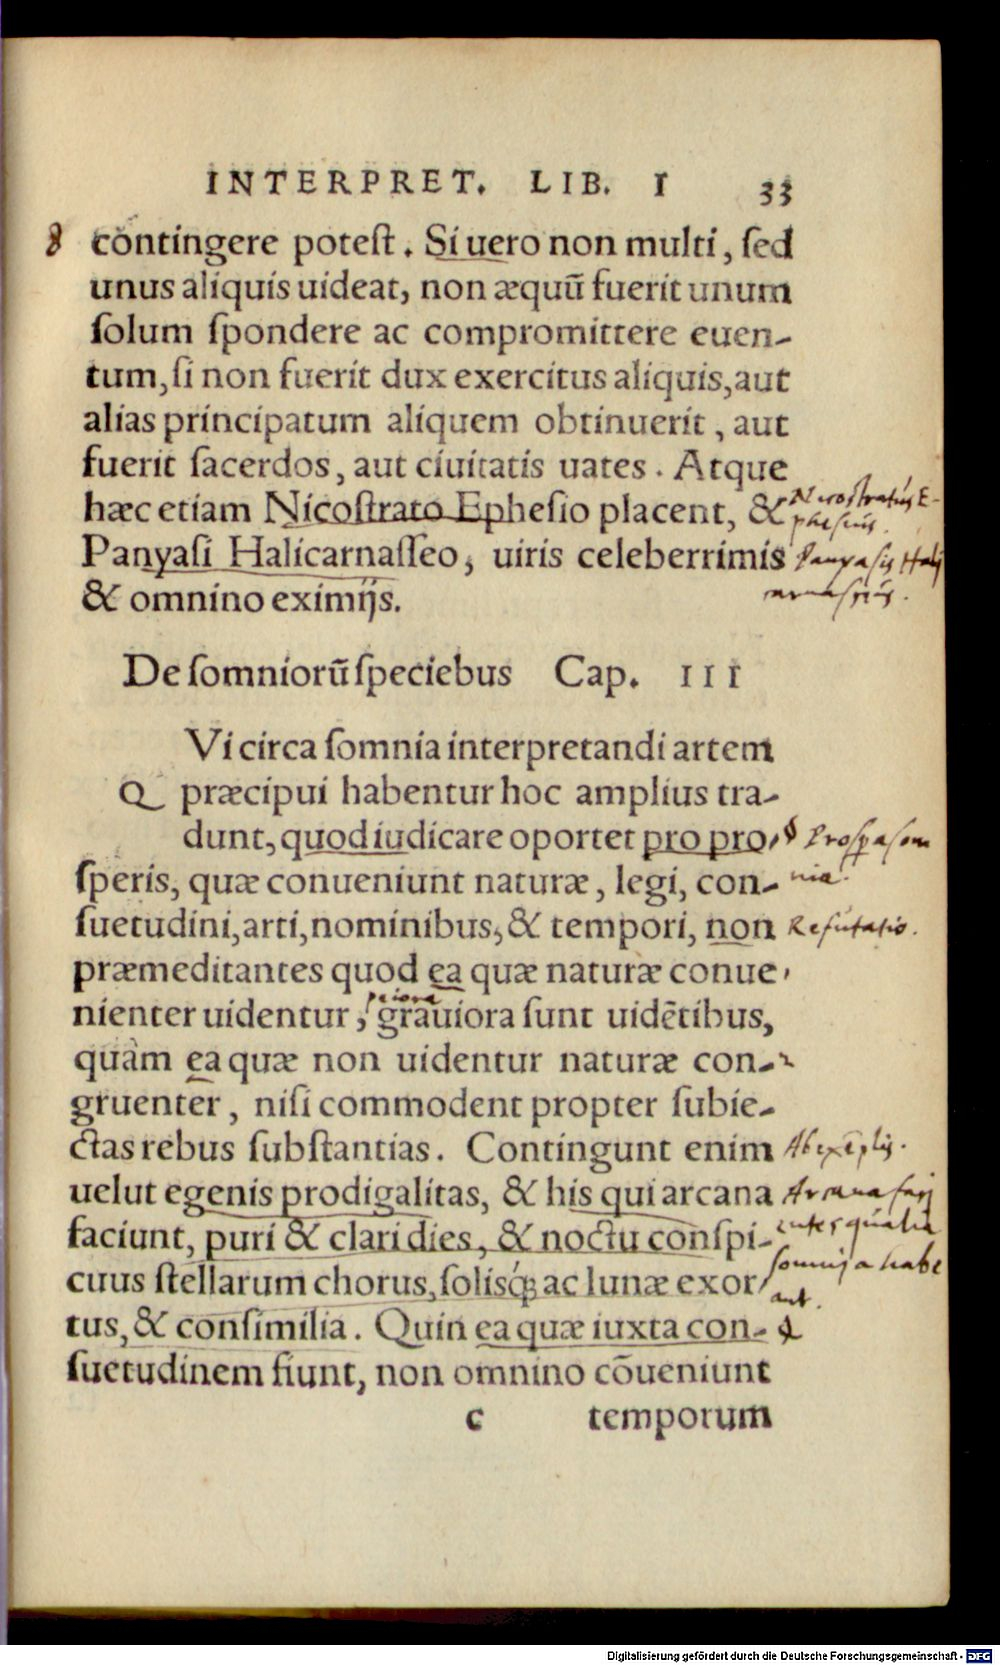 INTERPRET. LIB. I 33
contingere potest. Si uero non multi, sed
unus aliquis uideat, non æquũ fuerit unum
solum spondere ac compromittere euen-
tum, si non fuerit dux exercitus aliquis, aut
alias principatum aliquem obtinuerit, aut
fuerit sacerdos, aut ciuitatis uates. Atque
hæc etiam Nicostrato Ephesio placent, &
Nicostratus E-
phesius.
Panyasi Halicarnasseo, uiris celeberrimis
Panyasis Hali
carnasseus.
& omnino eximijs.
De somniorũ speciebus Cap. III
Vi circa somnia interpretandi artem
Q præcipui habentur hoc amplius tra-
dunt, quod iudicare oportet pro pro-
Prospera som
nia.
speris, quæ conueniunt naturæ, legi, con-
suetudini, arti, nominibus, & tempori, non
Refutatio.
præmeditantes quod ea quæ naturæ conue-
peiora
nienter uidentur, grauiora sunt uidẽtibus,
quàm ea quæ non uidentur naturæ con-
gruenter, nisi commodent propter subie-
ctas rebus substantias. Contingunt enim
Ab exẽplis.
uelut egenis prodigalitas, & his qui arcana
Arcana faci
entes qualia
somnia habe
ant.
faciunt, puri & clari dies, & noctu conspi-
cuus stellarum chorus, solisq́; ac lunæ exor
tus, & consimilia. Quin ea quæ iuxta con-
suetudinem fiunt, non omnino cõueniunt
c temporum
Digitalisierung gefördert durch die Deutsche Forschungsgemeinschaft - DFG